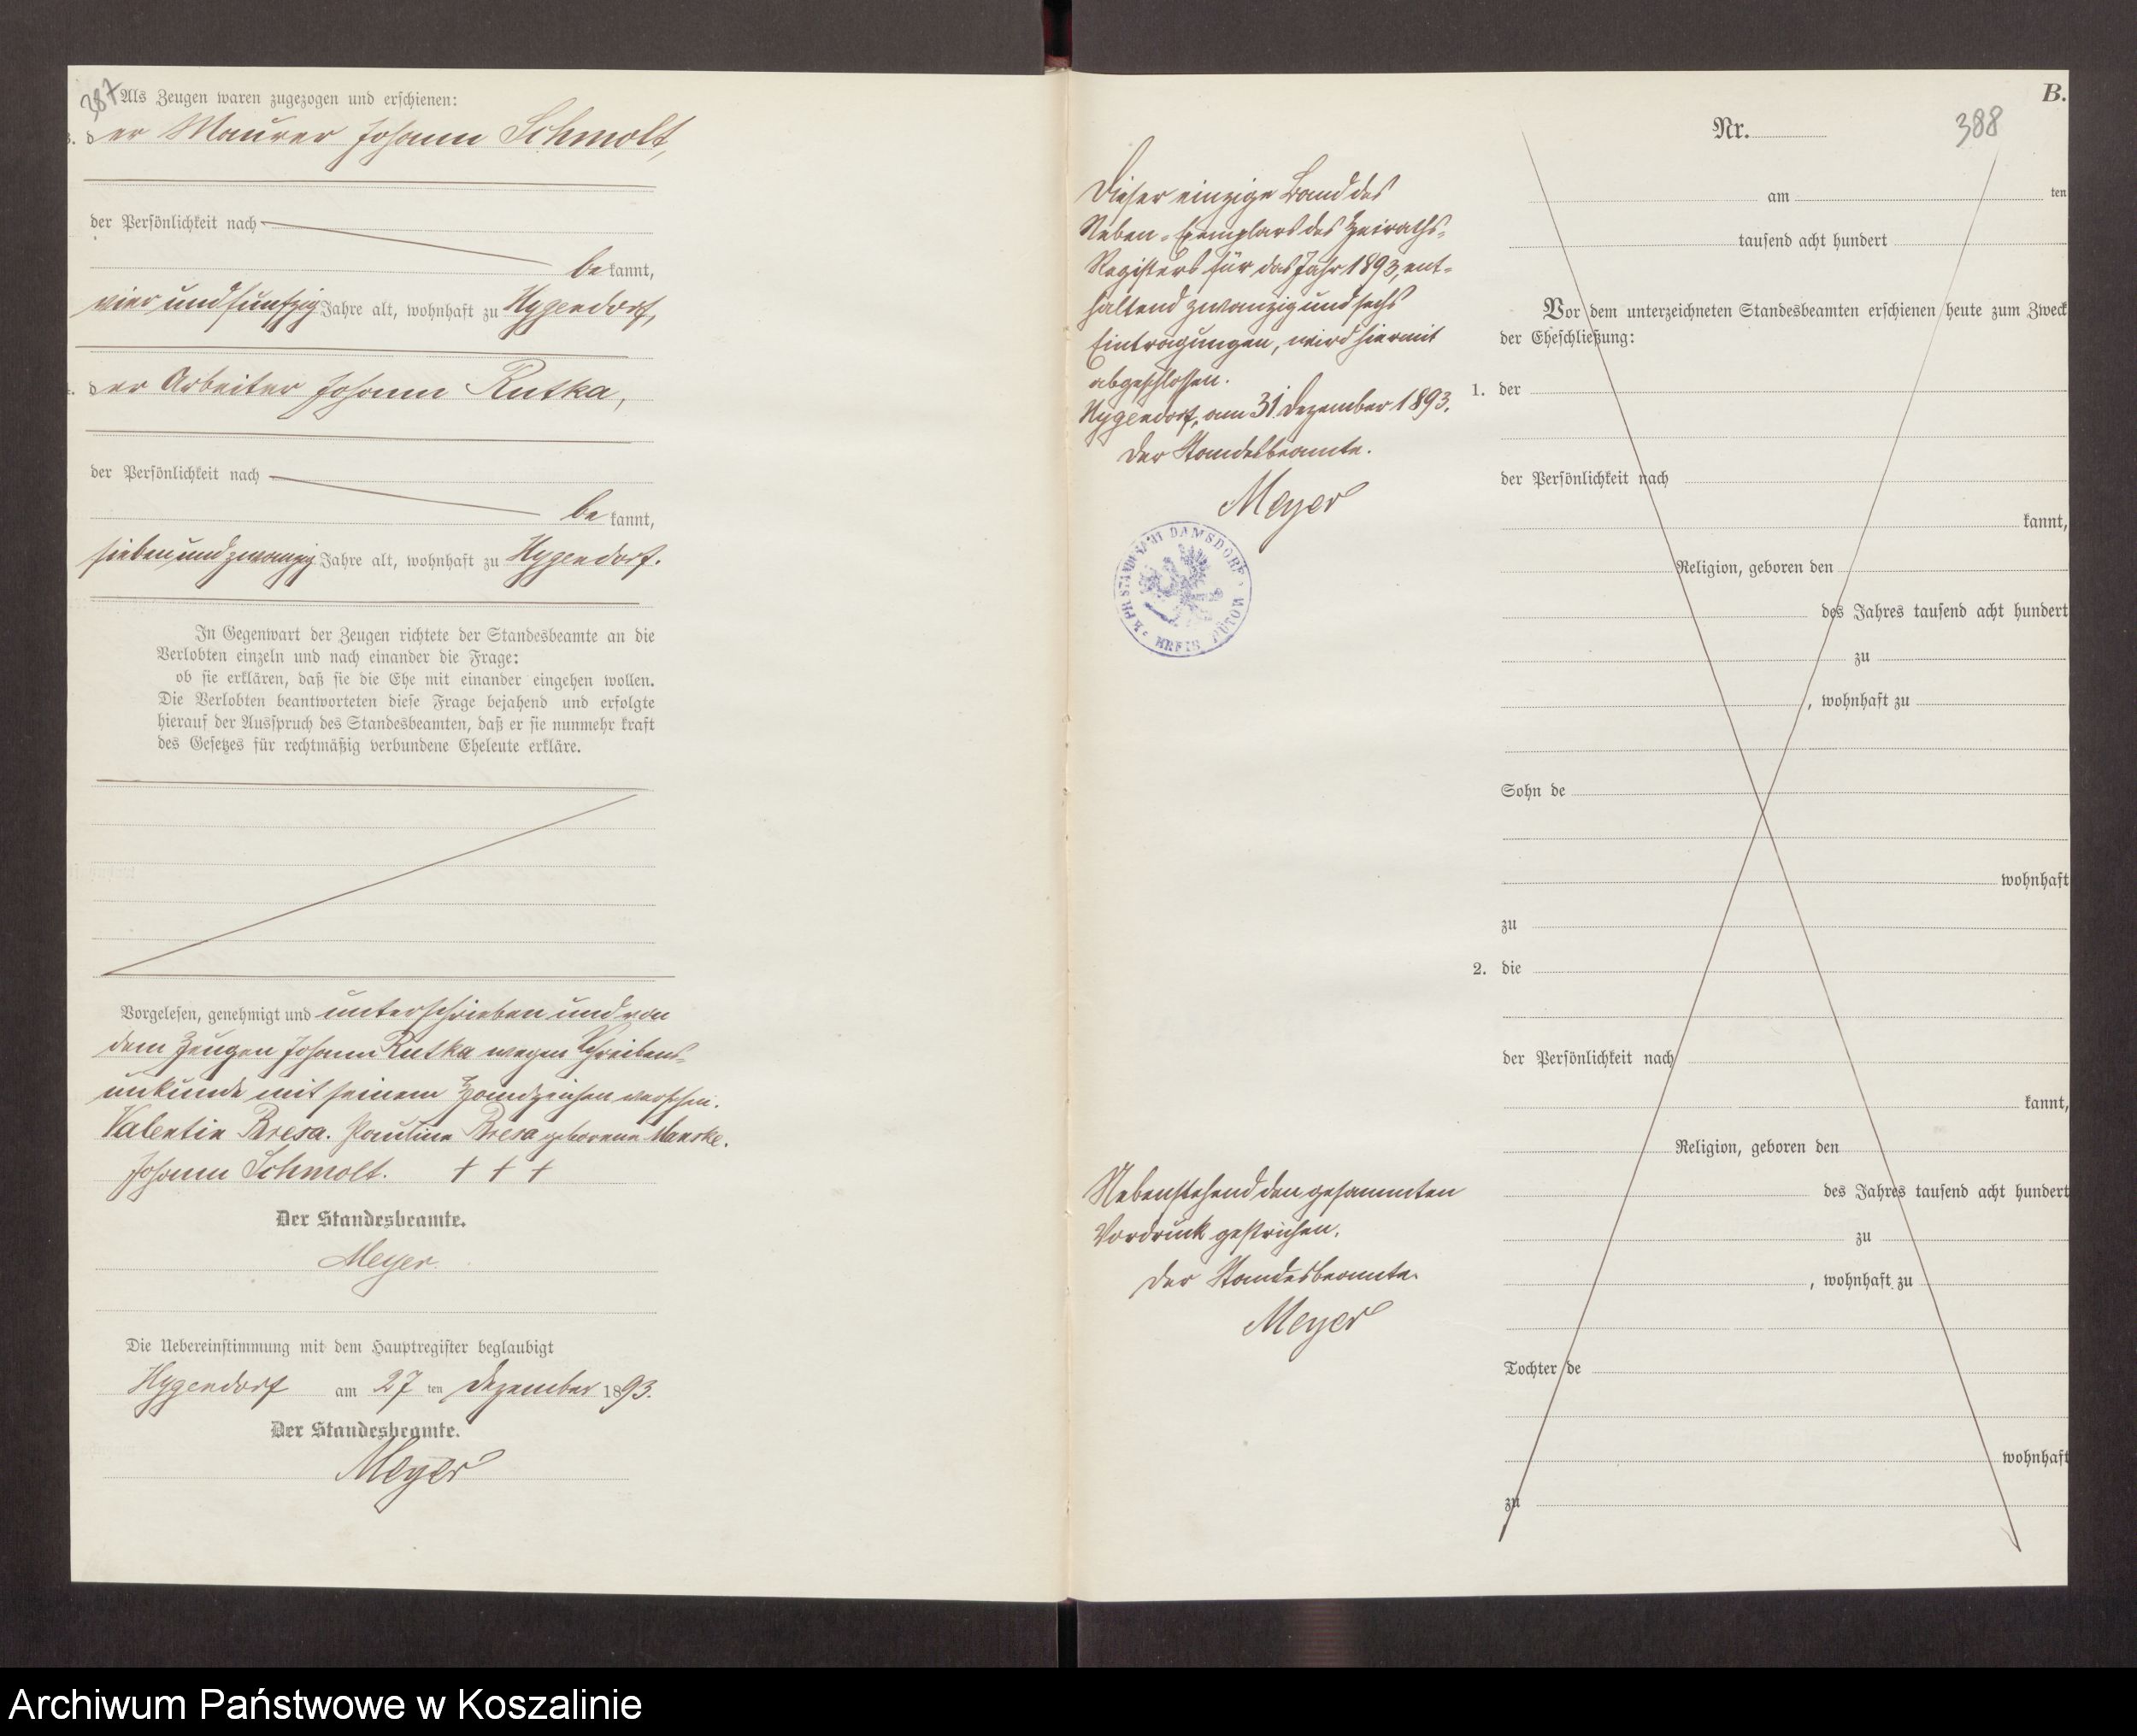 387
Als Zeugen waren zugezogen und erschienen:
3. der Maurer Johann Schmolt,
der Persönlichkeit nach
bekannt,
vier und fünfzig Jahre alt, wohnhaft zu Hygendorf,
4. der Arbeiter Johann Rutka,
der Persönlichkeit nach
bekannt,
sieben und zwanzig Jahre alt, wohnhaft zu Hygendorf.
In Gegenwart der Zeugen richtete der Standesbeamte an die
Verlobten einzeln und nach einander die Frage:
ob sie erklären, daß sie die Ehe mit einander eingehen wollen.
Die Verlobten beantworteten diese Frage bejahend und erfolgte
hierauf der Ausspruch des Standesbeamten, daß er sie nunmehr kraft
des Gesetzes für rechtmäßig verbundene Eheleute erkläre.
Vorgelesen, genehmigt und unterschrieben und von
dem Zeugen Johann Rutka wegen Schreibens-
unkunde mit seinem Handzeichen versehen.
Valentin Bresa. Pauline Bresa geborene Manske.
Johann Schmolt. + + +
Der Standesbeamte.
Meyer.
Die Uebereinstimmung mit dem Hauptregister beglaubigt
Hygendorf am 27 ten Dezember 1893.
Der Standesbeamte.
Meyer
Dieser einzige Band des
Neben-Exemplars des Heiraths-
Registers für das Jahr 1893, ent-
haltend zwanzig und sechs
Eintragungen, wird hiermit
abgeschlossen.
Hygendorf, am 31. Dezember 1893.
Der Standesbeamte.
Meyer
K. PR. STANDESAMT DAMSDORF · KREIS BÜTOW ·
Nebenstehend den gesammten
Vordruck gestrichen.
Der Standesbeamte.
Meyer
B.
Nr.
388
am ten
tausend acht hundert
Vor dem unterzeichneten Standesbeamten erschienen heute zum Zweck
der Eheschließung:
1. der
der Persönlichkeit nach
kannt,
Religion, geboren den
des Jahres tausend acht hundert
zu
, wohnhaft zu
Sohn de
wohnhaft
zu
2. die
der Persönlichkeit nach
kannt,
Religion, geboren den
des Jahres tausend acht hundert
zu
, wohnhaft zu
Tochter de
wohnhaft
zu
Archiwum Państwowe w Koszalinie